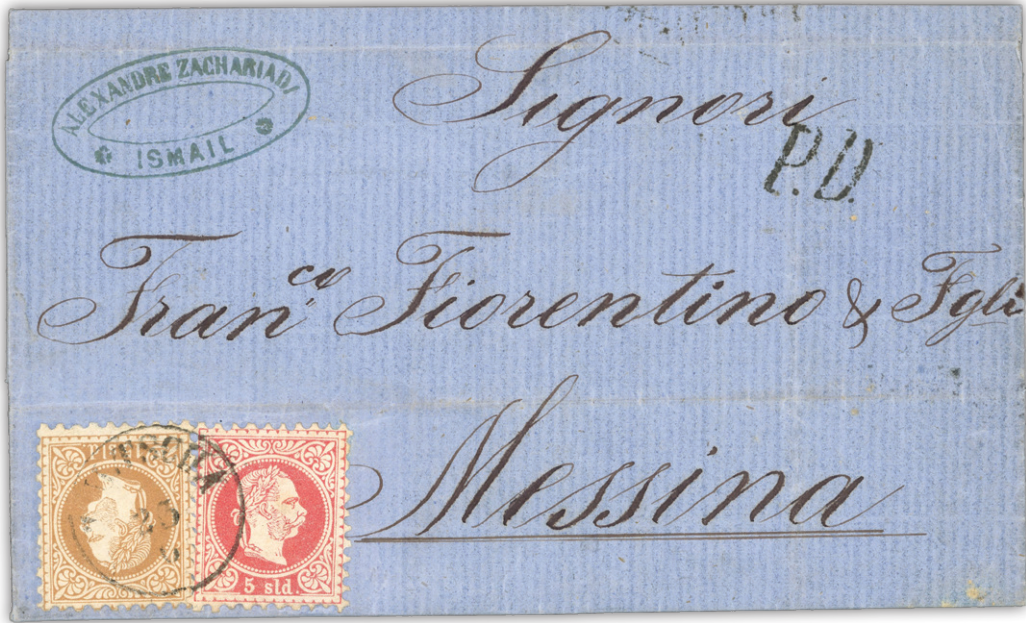 ALEXANDRE ZACHARIADI
ISMAIL
Signori
P.D.
Fran.co Fiorentino & Fgli
Messina
5 sld.